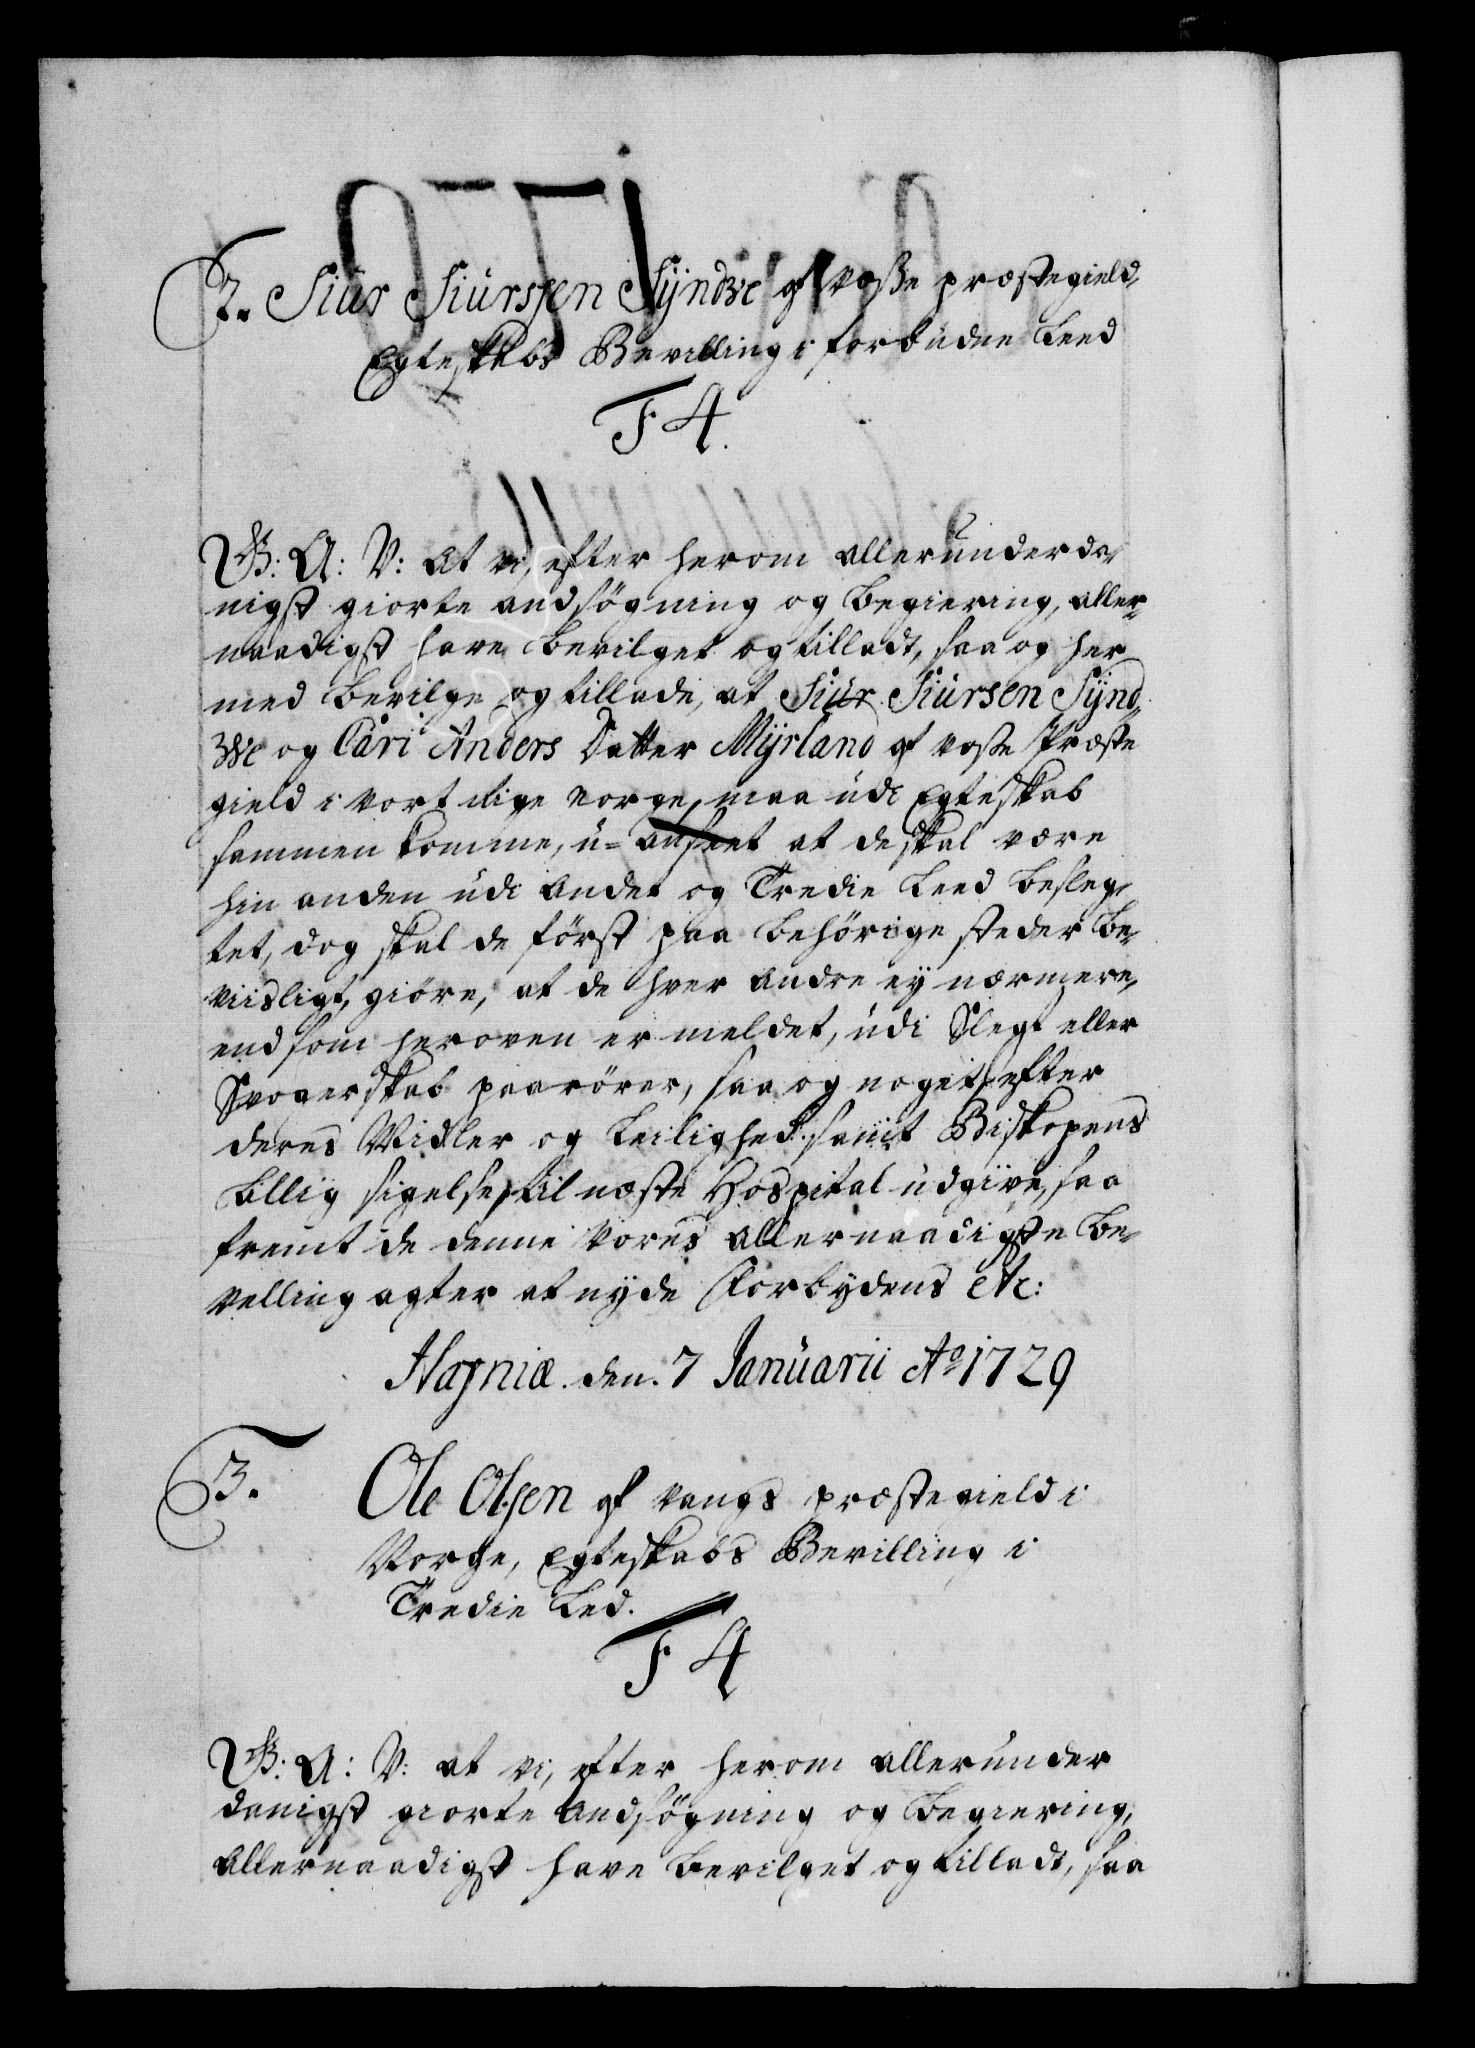 2. Siúr Siúrssen Syndwe af Voße præstegield,
Egteskabs Bevilling i forbúdne Leed
F 4.
G: A: V: at vi, efter herom allerúnderda-
nigst giorte andsögning og begiering, aller-
naadigst have bevilget og tilladt, saa og her
med bevilge og tillade, at Siúr Siúrsen Synd,
we og Cari Anders Datter Myrland af Voße Præste
gield i Vort Rige Norge, maa údi Egteskab
sammen komme, ú-anseet at de skal være
hin anden údi andet og Tredie Leed besleg-
tet, dog skal de först paa behörige steder be-
viisligt, giöre, at de hver andre ey nærmere,
end som heroven er meldet, údi Slegt eller
Svogerskab paarörer, saa og noget, efter
deres Midler og Leilighed, samt Biskopens
billig sigelse, til næste Hospital údgive, saa
fremt de denne Vores allernaadigste be-
villing agter at nyde Forbydens etc:
Hafniæ den. 7 Janúarii Ao 1729
3. Ole Olsen af Vangs præstegield i
Norge, Egteskabs Bevilling i
Tredie Led.
F 4
G: A: V: at vi, efter herom allerúnder
danigst giorte Andsögning og begiering,
Allernaadigst have bevilget og tilladt, saa